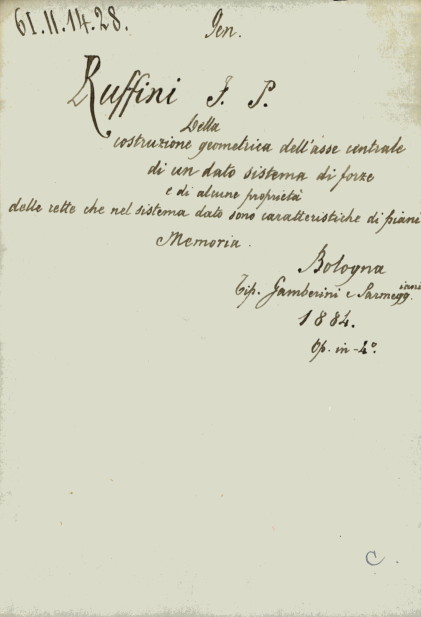 61.11.14.28.
Gen.
Ruffini F. P.
Della
costruzione geometrica dell'asse centrale
di un dato sistema di forze
e di alcune proprietà
delle rette che nel sistema dato sono caratteristiche di piani
Memoria.
Bologna
Tip. Gamberini e Parmeggiani
1884.
Op. in-4°.
C.